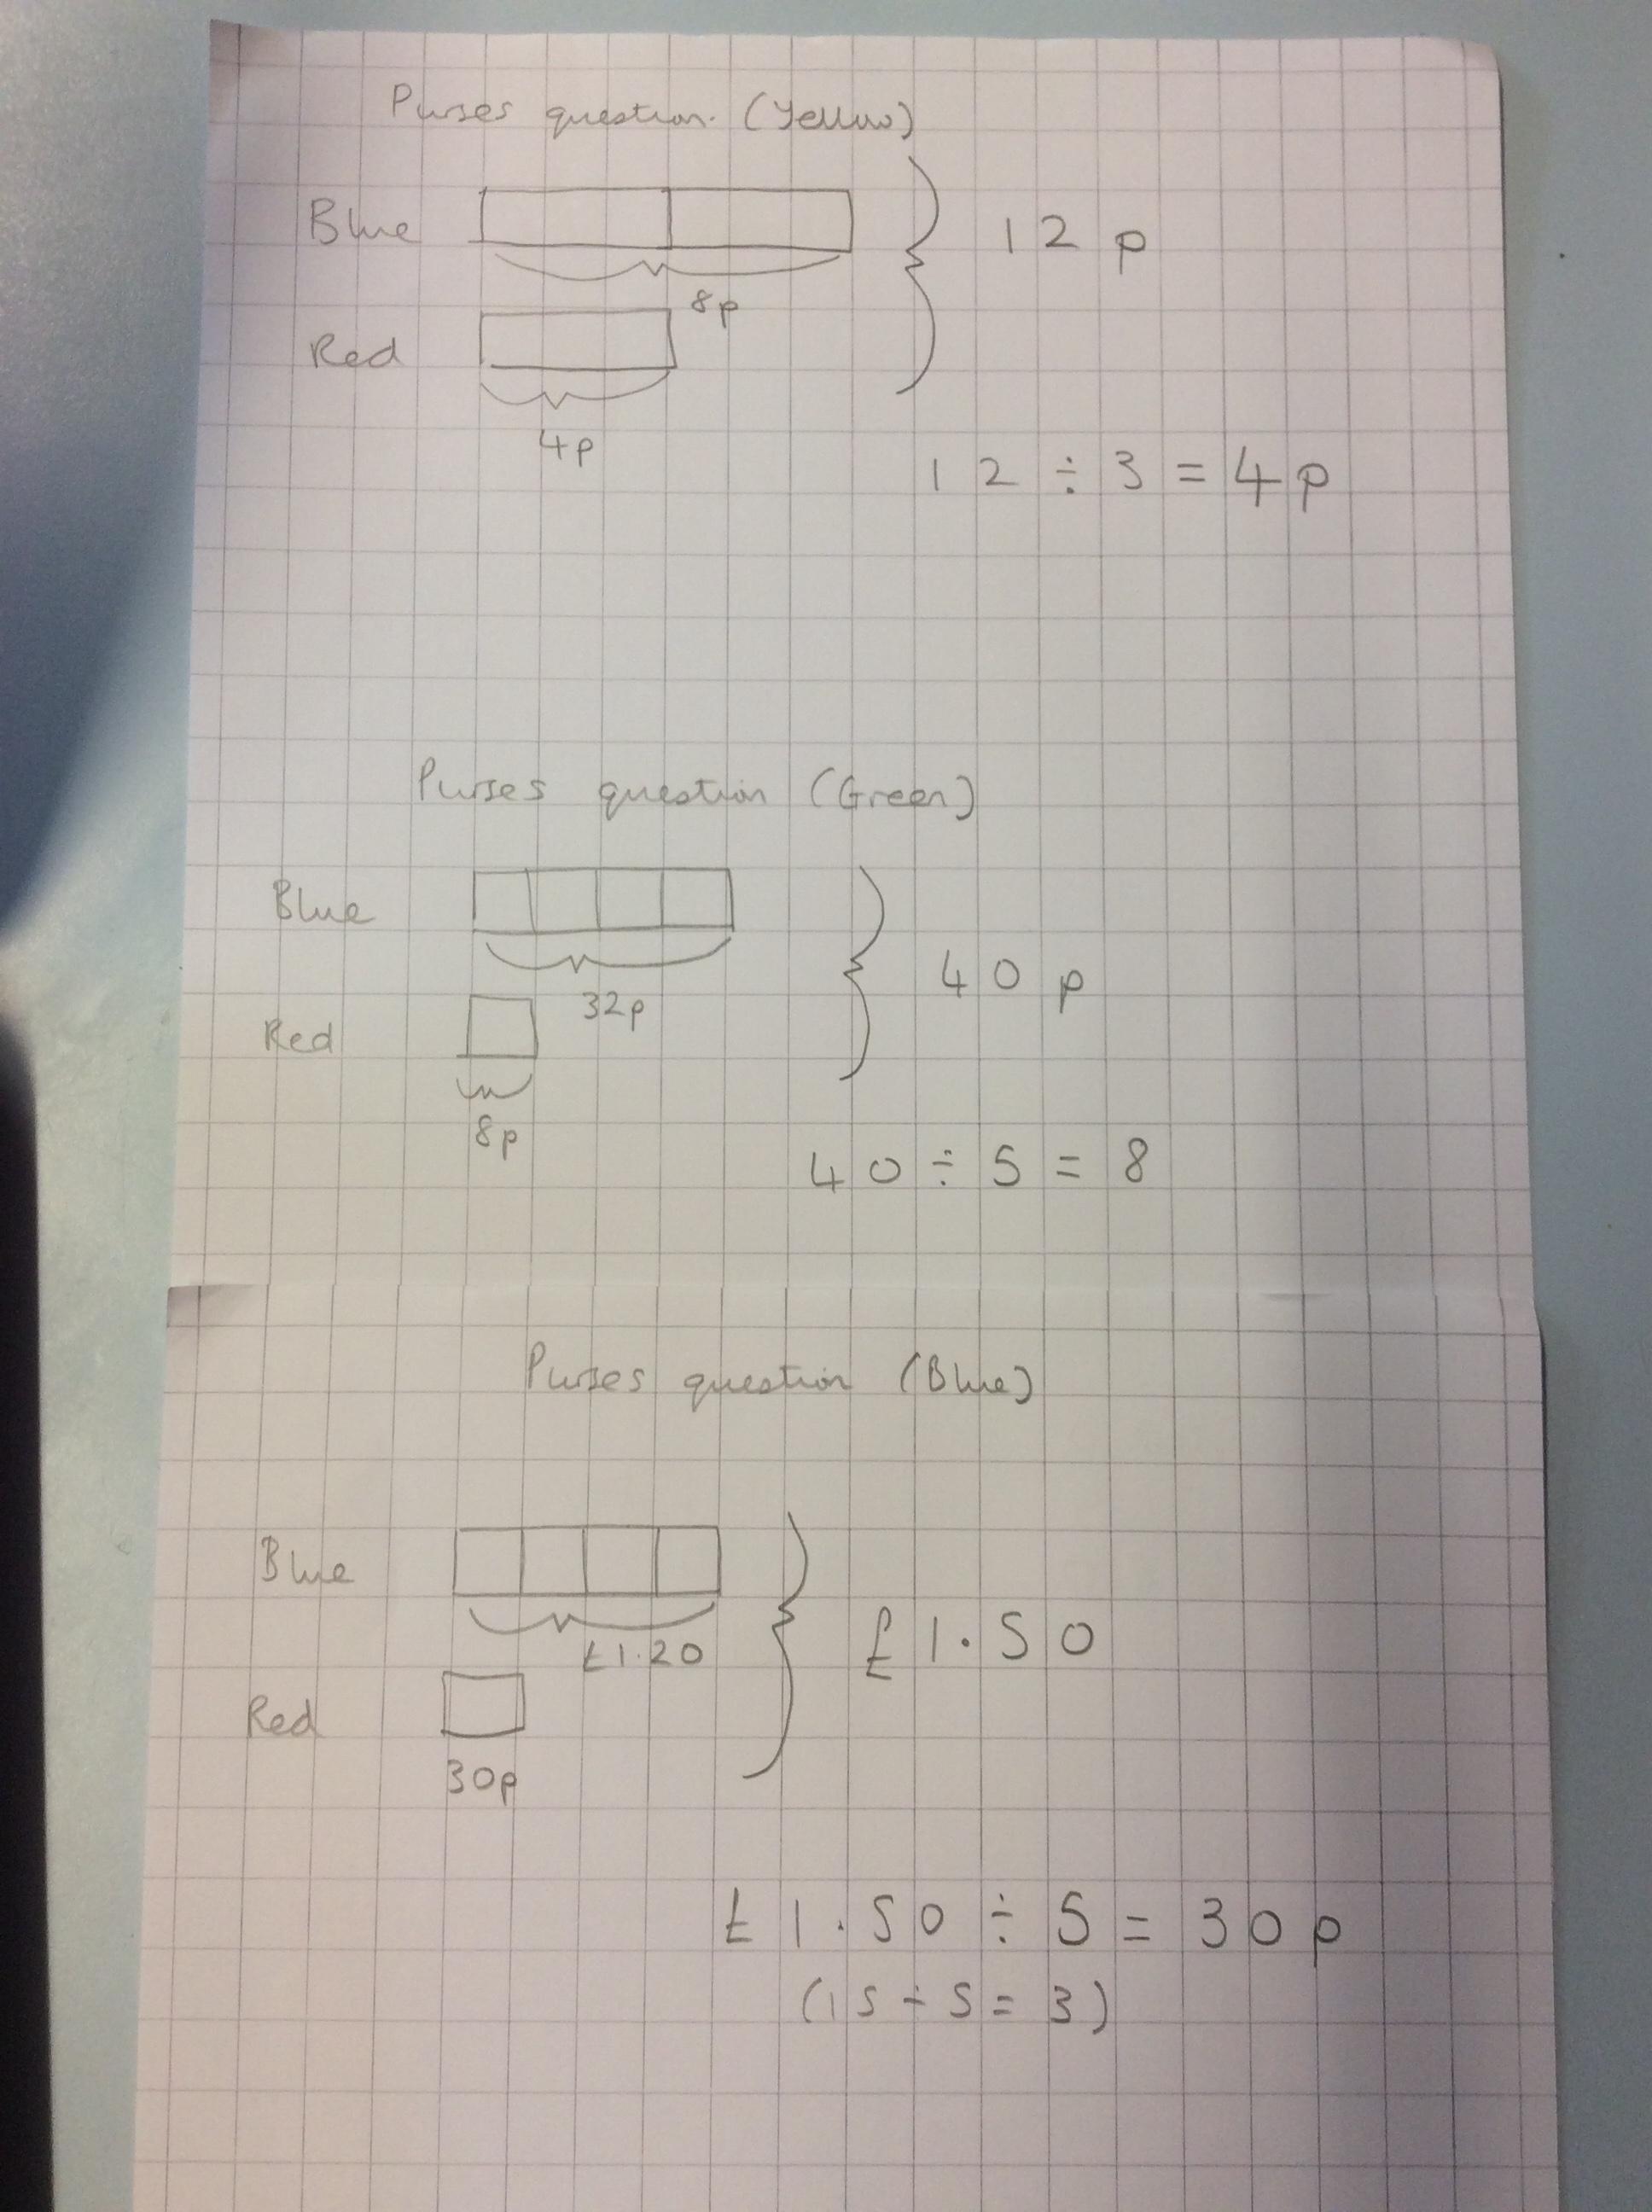 Purses question (Yellow)
Blue
12 p
8p
Red
4p
12 ÷ 3 = 4p
Purses question (Green)
Blue
40 p
32p
Red
8p
40 ÷ 5 = 8
Purses question (Blue)
Blue
£1.50
£1.20
Red
30p
£1.50 ÷ 5 = 30p
(15 ÷ 5 = 3)